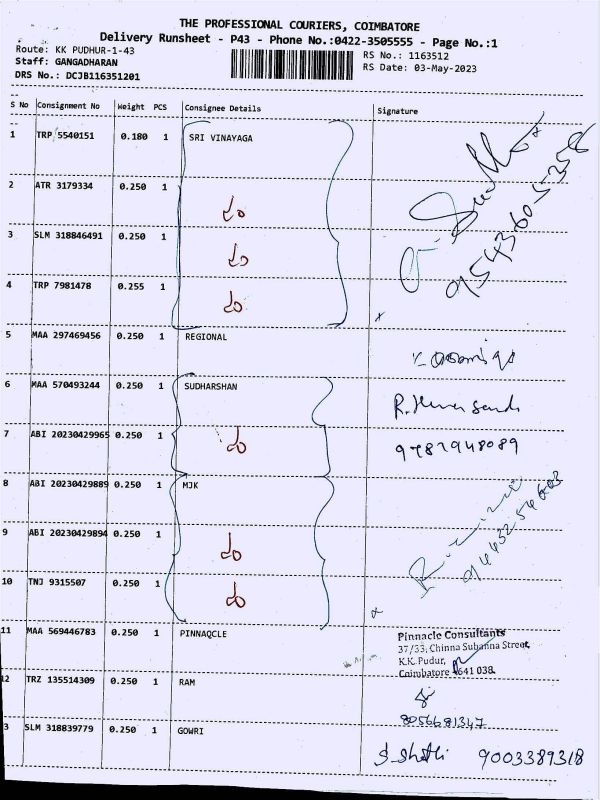 THE PROFESSIONAL COURIERS, COIMBATORE
Delivery Runsheet - P43 - Phone No.:0422-3505555 - Page No.:1
Route: KK PUDHUR-1-43
Staff: GANGADHARAN
DRS No.: DCJB116351201
RS No.: 1163512
RS Date: 03-May-2023
S No Consignment No Weight PCS Consignee Details Signature
1 TRP 5540151 0.180 1 SRI VINAYAGA
2 ATR 3179334 0.250 1 do
3 SLM 318846491 0.250 1 do
4 TRP 7981478 0.255 1 do
5 MAA 297469456 0.250 1 REGIONAL
6 MAA 570493244 0.250 1 SUDHARSHAN
7 ABI 20230429965 0.250 1 do
9787948089
8 ABI 20230429889 0.250 1 MJK
9 ABI 20230429894 0.250 1 do
10 TNJ 9315507 0.250 1 do
11 MAA 569446783 0.250 1 PINNAQCLE
Pinnacle Consultants
37/33, Chinna Subanna Street,
K.K. Pudur,
Coimbatore 641 038.
12 TRZ 135514309 0.250 1 RAM
8056681347
3 SLM 318839779 0.250 1 GOWRI
9003389318